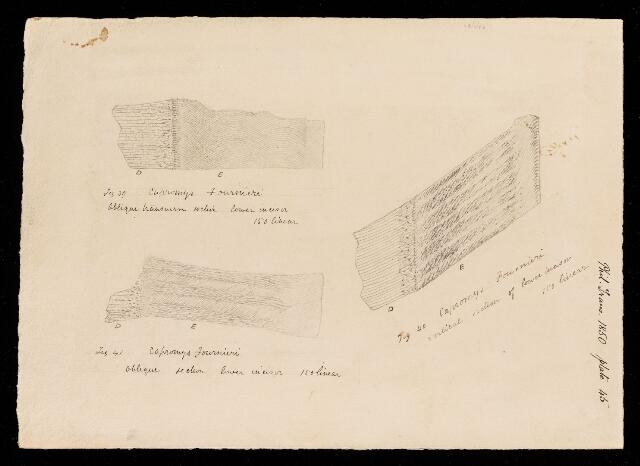 D
E
Fig 39 Capromys Fournieri
Oblique transverse section lower incisor
150 linear
D
E
Fig 41 Capromys Fournieri
oblique section lower incisor 150 linear
D
E
Fig 40 Capromys Fournieri
vertical section of lower incisor
150 linear
Phil Trans. 1850 plate 45